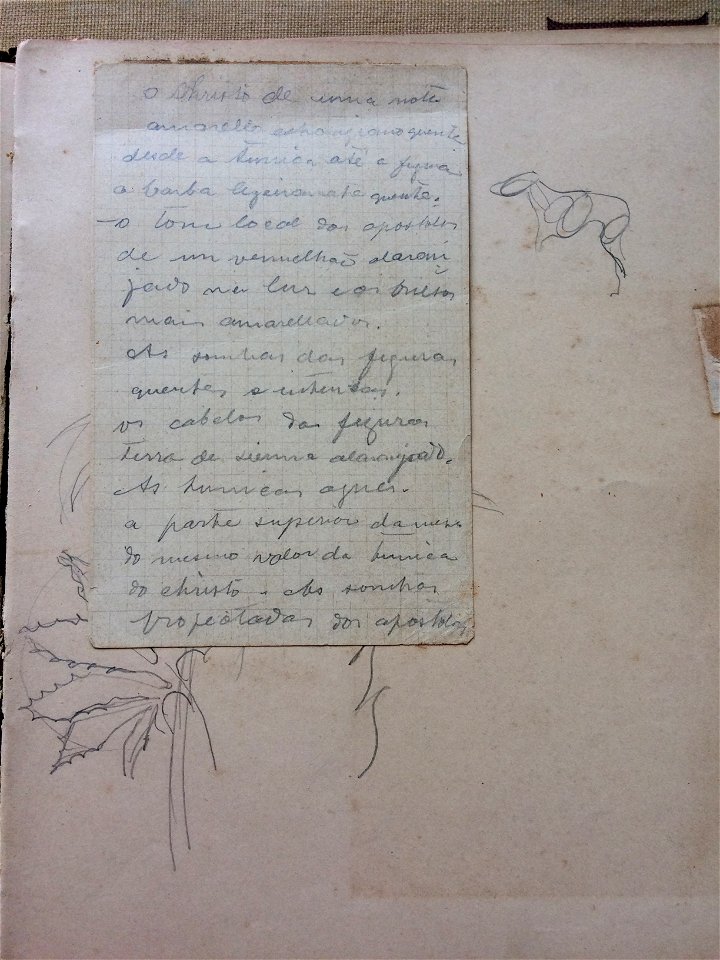 o Christo de uma nota
amarello quente
desde a tunica até a figura
a barba quente.
– o tom local dos apostolos
de um vermelhão alaran
jado na luz e os
mais amarellados.
As sombras das figuras
quentes e intensas.
os cabelos das figuras
terra de sienna alaranjado.
As tunicas
a parte superior da mesa
do mesmo valor da tunica
do christo. As sombras
projectadas dos apostolos